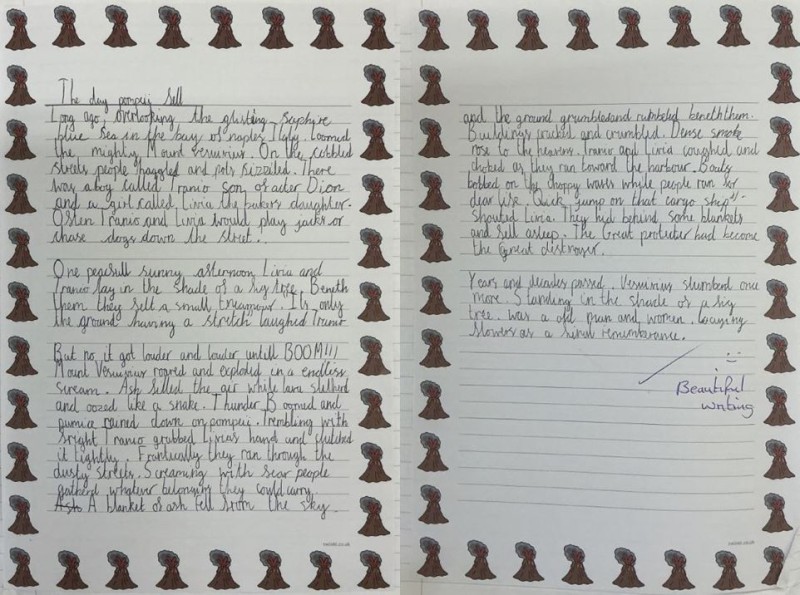 The day pompeii fell
Long ago, overlooking the glisting saphire
blue sea in the bay of naples Italy loomed
the mighty Mount vesuvius. On the cobbled
streets people haggled and pots sizzeled. There
was a boy called Tranio son of acter Dion
and a girl called Livia the bakers daughter.
Often Tranio and Livia would play jacks or
chase dogs down the street.
One pegefull sunny afternoon Livia and
Tranio lay in the shade of a fig tree. Beneth
them they fell a small treamour. "It's only
the ground having a stretch" laughed Tranio
But no it got louder and louder untill BOOM!!!
Mount Vesuvius roared and exploded in a endless
scream. Ash filled the air while lava slithed
and oozed like a snake. Thunder Boomed and
pumice rained down on pompeii. Trembling with
fright Tranio grabbed Livias hand and cluched
it tightly. Frantically they ran through the
dusty streets. Screaming with fear people
gatherd whatever belonging they could carry.
Ash A blanket of ash fell from the sky
and the ground grumbled and rumbled beneth them.
Buildings cracked and crumbled. Dense smoke
rose to the heavens. Tranio and Livia coughed and
choked as they ran toward the harbour. Boats
bobbed on the choppy waves while people ran for
dear life. "Quick jump on that cargo ship"
shouted Livia. They hid behind some blankets
and fell asleep. The Great protecter had become
the Great distroyer.
Years and decades passed. Vesuvius slumberd once
more. Standing in the shade of a fig
tree. was a old man and women. laying
flowers as a rememberance.
Beautiful
writing
twinkl.co.uk
twinkl.co.uk